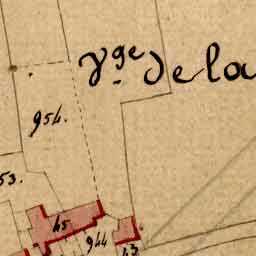 Vge de la
954.
53.
45
944
43